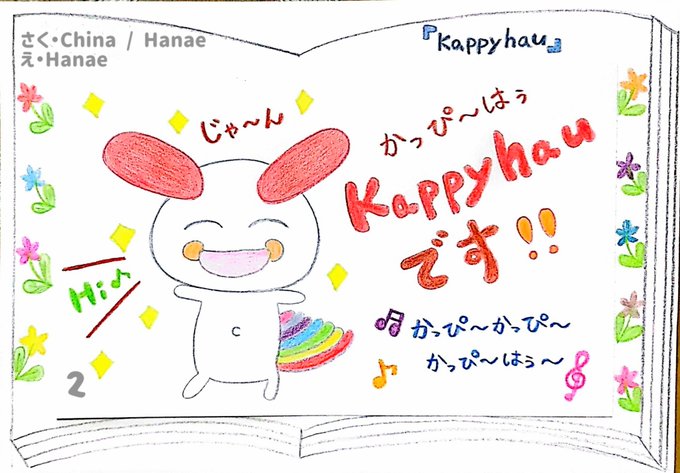 さく・China / Hanae
え・Hanae
『Kappyhau』
じゃ〜ん
かっぴ〜はぅ
Kappyhau
です!!
Hi♪
C
かっぴ〜かっぴ〜
かっぴ〜はぅ〜
2